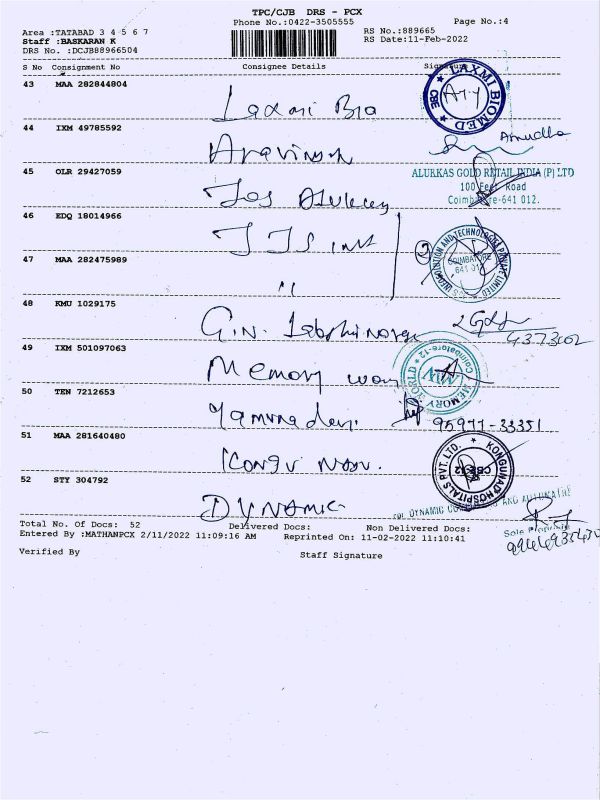 TPC/CJB DRS - PCX
Phone No.:0422-3505555
Page No.:4
Area :TATABAD 3 4 5 6 7
Staff :BASKARAN K
DRS No. :DCJB88966504
RS No.:889665
RS Date:11-Feb-2022
S No Consignment No Consignee Details Signature
43 MAA 282844804
Laxmi Bio
LAXMI BIOMED
CBE
44 IXM 49785592
Aravindh
Amudha
45 OLR 29427059
Jos Alukkas
ALUKKAS GOLD RETAIL INDIA (P) LTD
100 Feet Road
Coimbatore-641 012.
46 EDQ 18014966
COIMBATORE
641 012
47 MAA 282475989
"
48 KMU 1029175
G.N.
49 IXM 501097063
Memory
MEMORY WORLD * Coimbatore-12 *
MW
50 TEN 7212653
Yamuna devi
95977-33351
51 MAA 281640480
Kongu Nan.
KONGUNAD HOSPITALS PVT. LTD.
CBE-12
52 STY 304792
DYNAMIC
For DYNAMIC
Total No. Of Docs: 52 Delivered Docs: Non Delivered Docs:
Entered By :MATHANPCX 2/11/2022 11:09:16 AM Reprinted On: 11-02-2022 11:10:41
Verified By Staff Signature